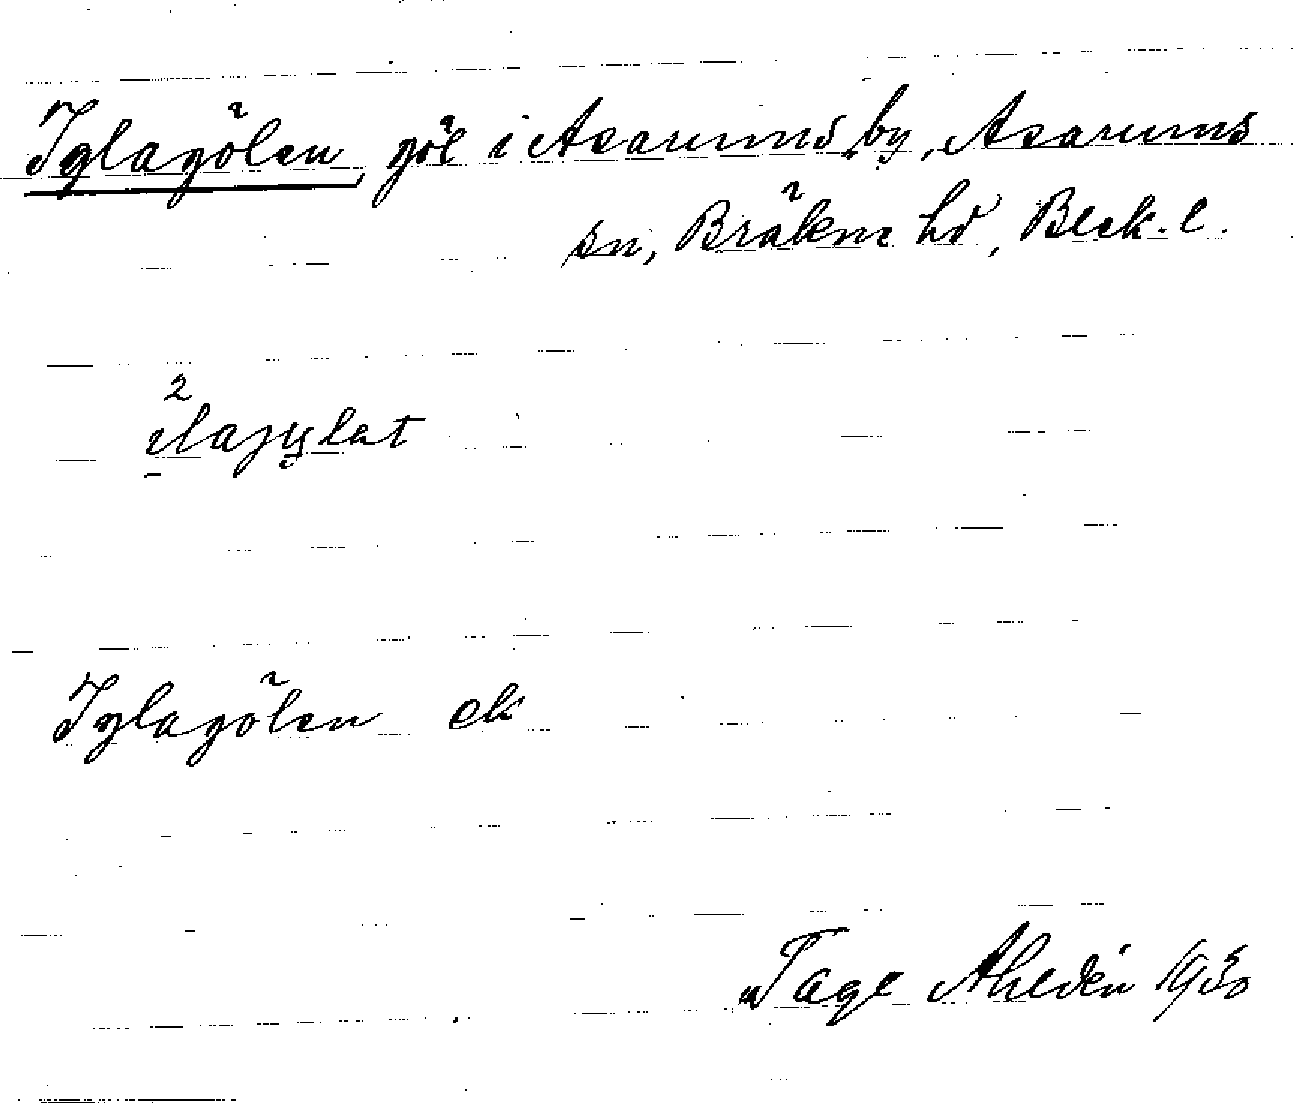 Iglagölen, göl i Asarums by, Asarums
sn, Bräkne hd, Blek. l.
Iglagölen ek
Tage Ahldén 1930